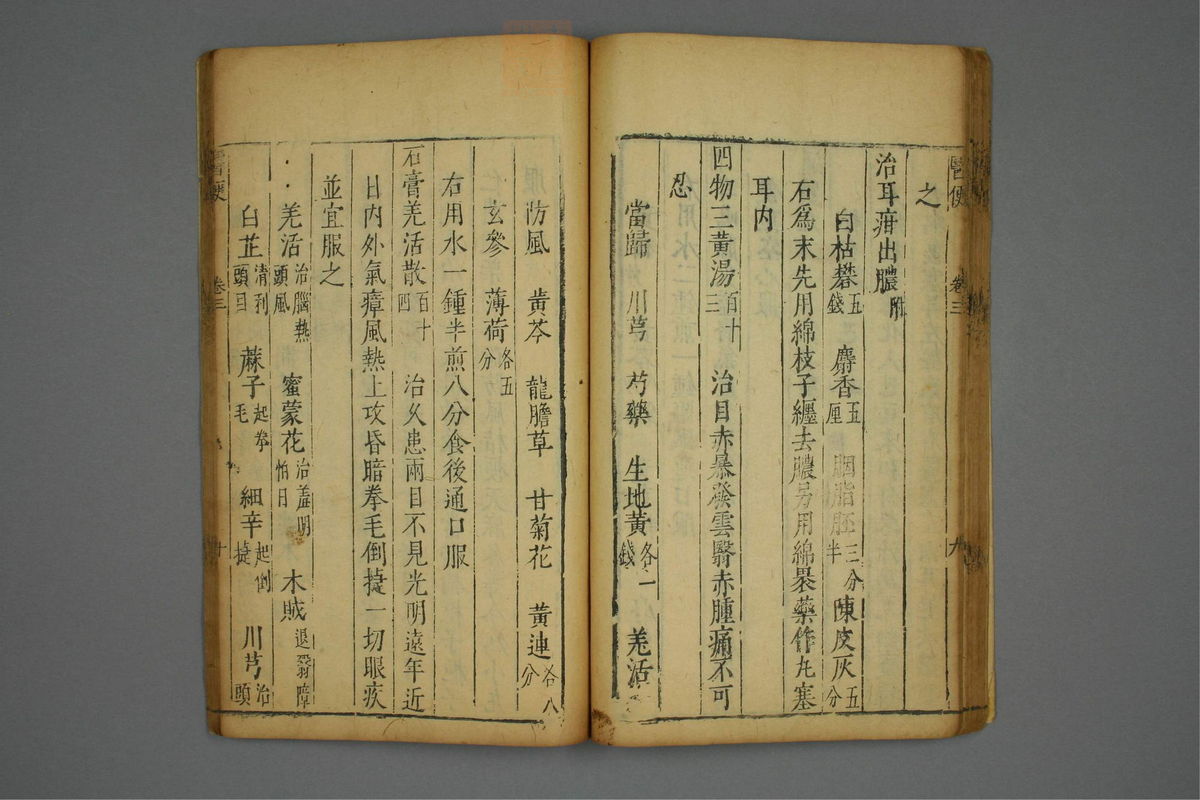 醫便 卷三 九
之
治耳疳出膿附
白枯礬五錢 麝香五厘 胭脂胚三分半 陳皮灰五分
右爲末先用綿枝子纏去膿另用綿裹藥作丸塞
耳内
四物三黃湯百十三 治目赤暴發雲翳赤腫痛不可
忍
當歸 川芎 芍藥 生地黃各一錢 羗活
防風 黃芩 龍膽草 甘菊花 黃連各八分
玄參 薄荷各五分
右用水一鍾半煎八分食後通口服
石膏羗活散百十四 治久患兩目不見光明遠年近
日内外氣瘴風熱上攻昏暗拳毛倒㨗一切眼疾
並宜服之
羗活治腦熱頭風 蜜蒙花治羞明怕日 木賊退翳障
白芷清利頭目 蔴子起拳毛 細辛起倒㨗 川芎治頭
醫便 卷三 十